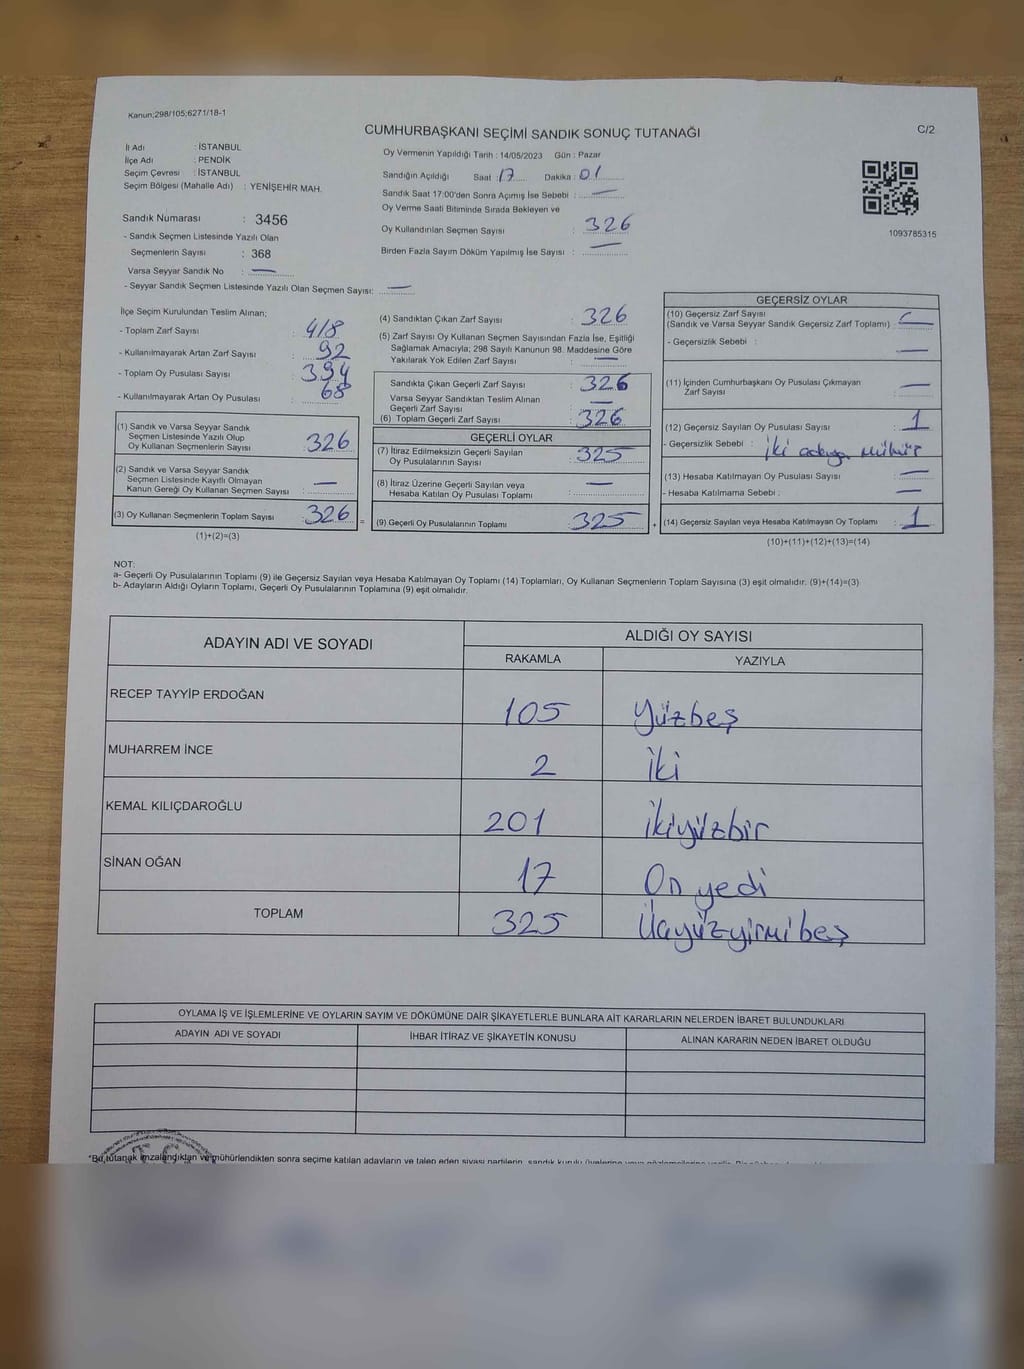 Kanun;298/105;6271/18-1
CUMHURBAŞKANI SEÇİMİ SANDIK SONUÇ TUTANAĞI
C/2
İl Adı : İSTANBUL
İlçe Adı : PENDİK
Seçim Çevresi : İSTANBUL
Seçim Bölgesi (Mahalle Adı) : YENİŞEHİR MAH.
Sandık Numarası : 3456
- Sandık Seçmen Listesinde Yazılı Olan
Seçmenlerin Sayısı : 368
Varsa Seyyar Sandık No : —
- Seyyar Sandık Seçmen Listesinde Yazılı Olan Seçmen Sayısı: —
Oy Vermenin Yapıldığı Tarih : 14/05/2023 Gün : Pazar
Sandığın Açıldığı Saat : 17 Dakika : 01
Sandık Saat 17:00'den Sonra Açılmış İse Sebebi : —
Oy Verme Saati Bitiminde Sırada Bekleyen ve
Oy Kullandırılan Seçmen Sayısı : 326
Birden Fazla Sayım Döküm Yapılmış İse Sayısı : —
1093785315
İlçe Seçim Kurulundan Teslim Alınan;
- Toplam Zarf Sayısı : 418
- Kullanılmayarak Artan Zarf Sayısı : 92
- Toplam Oy Pusulası Sayısı : 394
- Kullanılmayarak Artan Oy Pusulası : 68
(1) Sandık ve Varsa Seyyar Sandık
Seçmen Listesinde Yazılı Olup
Oy Kullanan Seçmenlerin Sayısı : 326
(2) Sandık ve Varsa Seyyar Sandık
Seçmen Listesinde Kayıtlı Olmayan
Kanun Gereği Oy Kullanan Seçmen Sayısı : —
(3) Oy Kullanan Seçmenlerin Toplam Sayısı : 326 =
(1)+(2)=(3)
(4) Sandıktan Çıkan Zarf Sayısı : 326
(5) Zarf Sayısı Oy Kullanan Seçmen Sayısından Fazla İse, Eşitliği
Sağlamak Amacıyla; 298 Sayılı Kanunun 98. Maddesine Göre
Yakılarak Yok Edilen Zarf Sayısı : —
Sandıkta Çıkan Geçerli Zarf Sayısı : 326
Varsa Seyyar Sandıktan Teslim Alınan
Geçerli Zarf Sayısı : —
(6) Toplam Geçerli Zarf Sayısı : 326
GEÇERLİ OYLAR
(7) İtiraz Edilmeksizin Geçerli Sayılan
Oy Pusulalarının Sayısı : 325
(8) İtiraz Üzerine Geçerli Sayılan veya
Hesaba Katılan Oy Pusulası Toplamı : —
(9) Geçerli Oy Pusulalarının Toplamı : 325 +
GEÇERSİZ OYLAR
(10) Geçersiz Zarf Sayısı
(Sandık ve Varsa Seyyar Sandık Geçersiz Zarf Toplamı) : —
- Geçersizlik Sebebi : —
(11) İçinden Cumhurbaşkanı Oy Pusulası Çıkmayan
Zarf Sayısı : —
(12) Geçersiz Sayılan Oy Pusulası Sayısı : 1
- Geçersizlik Sebebi : iki adaya mühür
(13) Hesaba Katılmayan Oy Pusulası Sayısı : —
- Hesaba Katılmama Sebebi : —
(14) Geçersiz Sayılan veya Hesaba Katılmayan Oy Toplamı : 1
(10)+(11)+(12)+(13)=(14)
NOT:
a- Geçerli Oy Pusulalarının Toplamı (9) ile Geçersiz Sayılan veya Hesaba Katılmayan Oy Toplamı (14) Toplamları, Oy Kullanan Seçmenlerin Toplam Sayısına (3) eşit olmalıdır. (9)+(14)=(3)
b- Adayların Aldığı Oyların Toplamı, Geçerli Oy Pusulalarının Toplamına (9) eşit olmalıdır.
ADAYIN ADI VE SOYADI
ALDIĞI OY SAYISI
RAKAMLA YAZIYLA
RECEP TAYYİP ERDOĞAN 105 Yüzbeş
MUHARREM İNCE 2 İki
KEMAL KILIÇDAROĞLU 201 İkiyüzbir
SİNAN OĞAN 17 On yedi
TOPLAM 325 Üçyüzyirmi beş
OYLAMA İŞ VE İŞLEMLERİNE VE OYLARIN SAYIM VE DÖKÜMÜNE DAİR ŞİKAYETLERLE BUNLARA AİT KARARLARIN NELERDEN İBARET BULUNDUKLARI
ADAYIN ADI VE SOYADI İHBAR İTİRAZ VE ŞİKAYETİN KONUSU ALINAN KARARIN NEDEN İBARET OLDUĞU
*Bu tutanak imzalandıktan ve mühürlendikten sonra seçime katılan adayların ve talep eden siyasi partilerin, sandık kurulu